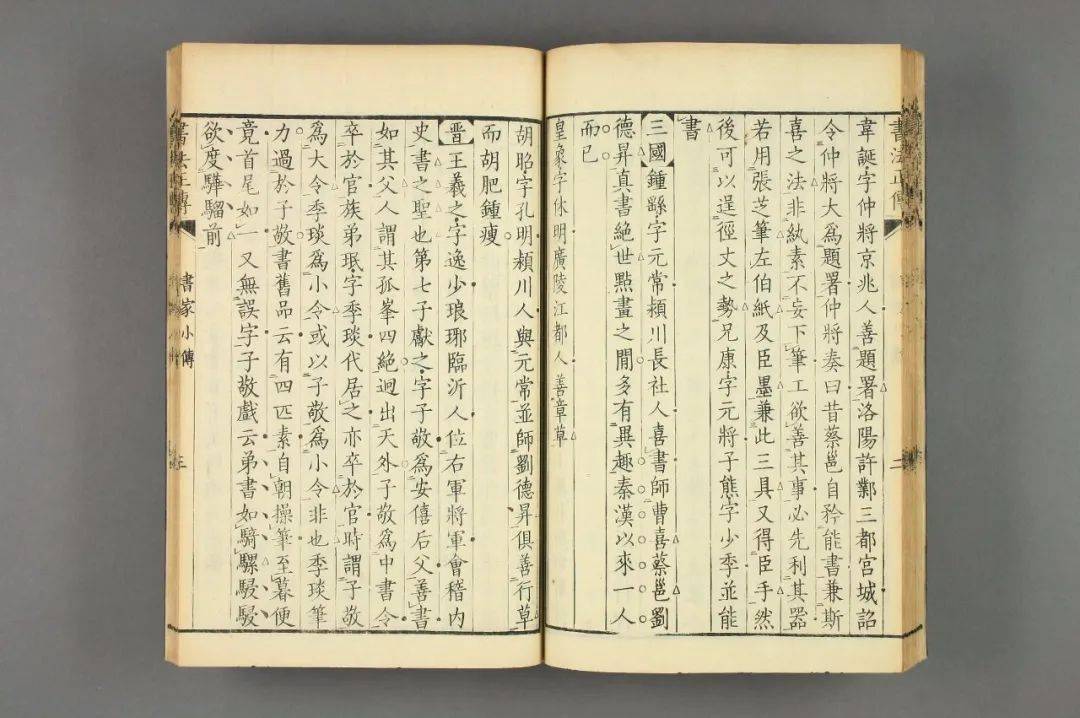 書法正傳
二
韋誕字仲將京兆人善題署洛陽許鄴三都宮城詔
令仲將大爲題署仲將奏曰昔蔡邕自矜能書兼斯
喜之法非紈素不妄下筆工欲善其事必先利其器
若用張芝筆左伯紙及臣墨兼此三具又得臣手然
後可以逞徑丈之勢兄康字元將子熊字少季並能
書
三國鍾繇字元常潁川長社人喜書師曹喜蔡邕劉
德昇真書絕世點畫之間多有異趣秦漢以來一人
而已
皇象字休明廣陵江都人善章草
胡昭字孔明潁川人與元常並師劉德昇俱善行草
而胡肥鍾瘦
晋王羲之字逸少琅琊臨沂人位右軍將軍會稽內
史書之聖也第七子獻之字子敬爲安僖后父善書
如其父人謂其孤峯四絕迥出天外子敬爲中書令
卒於官族弟珉字季琰代居之亦卒於官時謂子敬
爲大令季琰爲小令或以子敬爲小令非也季琰筆
力過於子敬書舊品云有四匹素自朝操筆至暮便
竟首尾如一又無誤字子敬戲云弟書如騎騾駸駸
欲度驊騮前
書法正傳
書家小傳
三